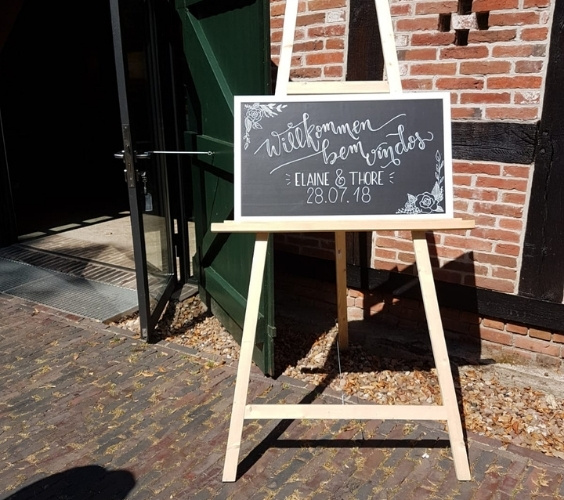 Willkommen
bem vindos
ELAINE & THORE
28.07.18